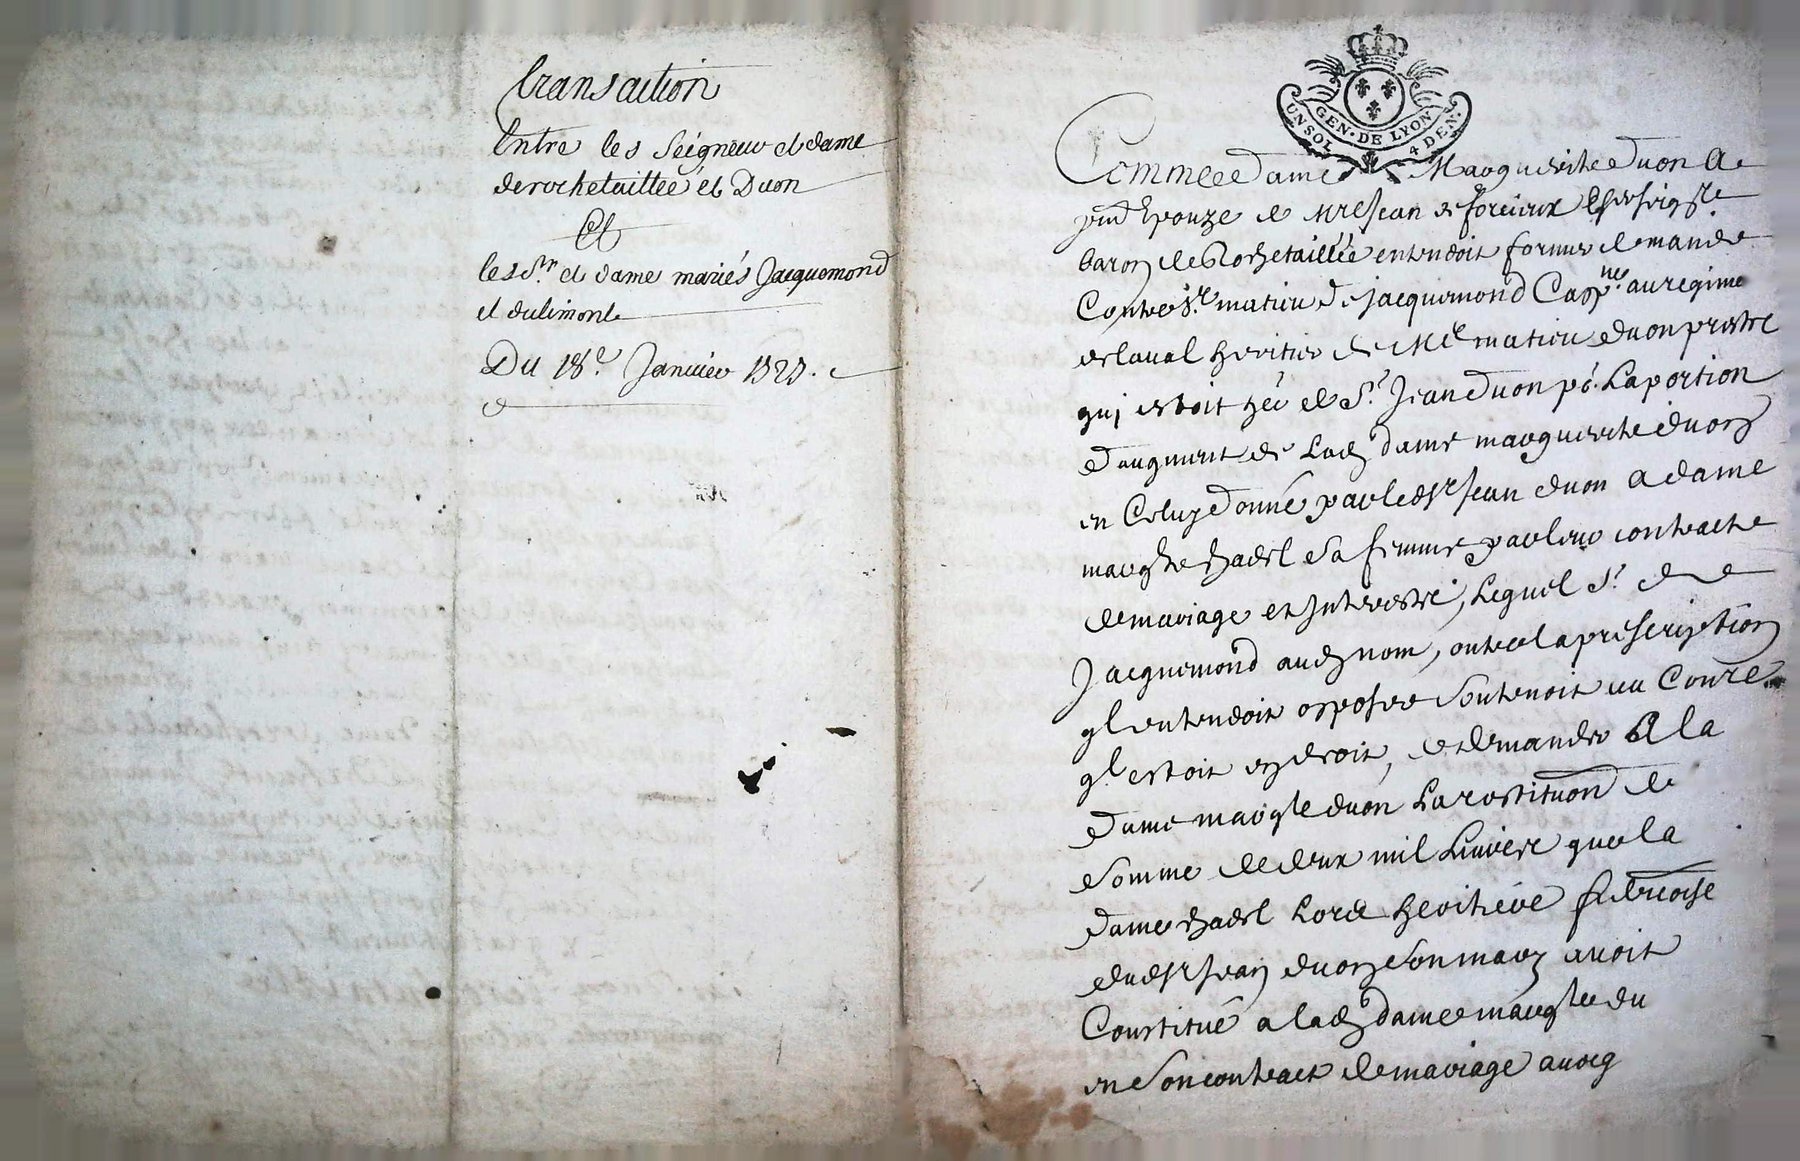 transaction
Entre les Seigneur et dame
de rochetaillée et Duon
Et
les Sr. et dame mariés Jacquemond
et dulimont
Du 18e. Janvier
GEN. DE LYON
UN SOL 4 DEN.
Comme Dame Marguerite Duon A
pnt Epouze de Mre Jean de forcieux
baron de Rochetaillée entendoit former demande
Contre Sr. matieu de Jacquemond Cappne. au regime
de laval heritier de matieu duon prestre
qui estoit de Sr. Jean Duon pr. La portion
d'augment de Lad dame marguerite duon
en Celuy donné par led Sr Jean duon A dame
margte badel Sa femme par leur contract
de mariage et Interests, Lequel Sr. de
Jacquemond aud nom, outre la prescription
ql entendoit opposer Soutenoit au Contre.
ql estoit en droit, de demander A la
Dame margte duon La restituon de
Somme de deux mil Livres que la
Dame badel Lors heritiere
dud Sr Jean duon Son mary avoit
Constitué a lad dame margte du
en Son contract de mariage avecq